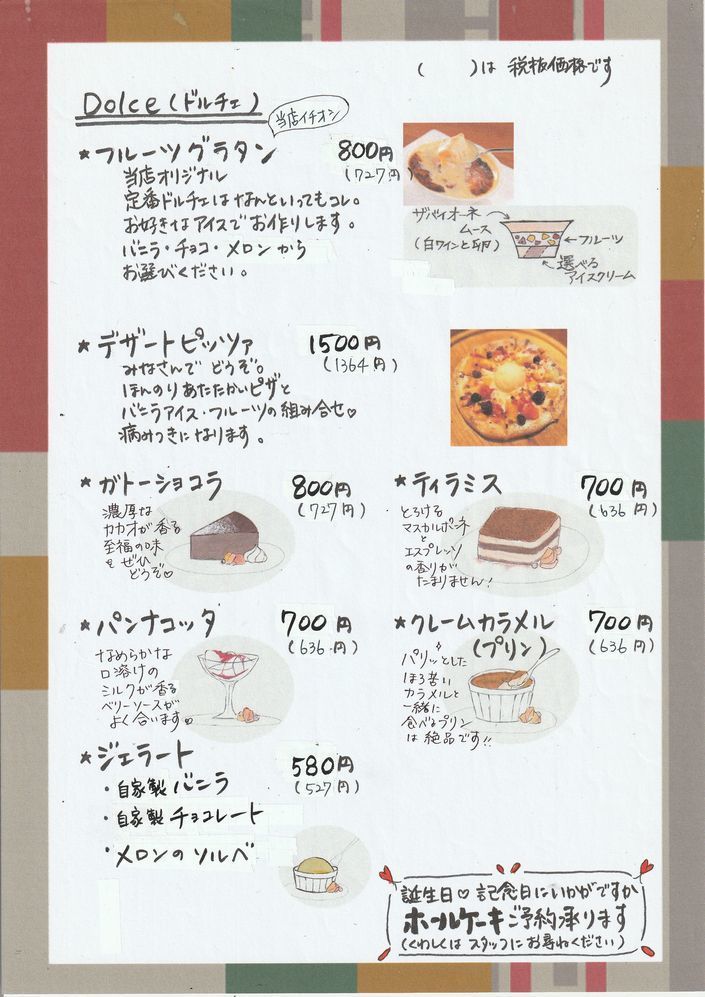 (　　)は 税抜価格です
Dolce(ドルチェ)
当店イチオシ
★フルーツグラタン 800円
(727円)
当店オリジナル
定番ドルチェはなんといってもコレ。
お好きなアイスでお作りします。
バニラ・チョコ・メロンから
お選びください。
ザバイオーネ
ムース
(白ワインと卵)
フルーツ
選べる
アイスクリーム
★デザートピッツァ 1500円
(1364円)
みなさんで どうぞ。
ほんのりあたたかいピザと
バニラアイス・フルーツの組み合せ♡
病みつきになります。
★ガトーショコラ 800円
(727円)
濃厚な
カカオが香る
至福の味
を ぜひ
どうぞ♡
★ティラミス 700円
(636円)
とろける
マスカルポーネ
と
エスプレッソ
の香りが
たまりません!
★パンナコッタ 700円
(636円)
なめらかな
口溶けの
ミルクが香る
ベリーソースが
よく合います♡
★クレームカラメル 700円
(プリン) (636円)
パリッとした
ほろ苦い
カラメルと
一緒に
食べるプリン
は 絶品です!!
★ジェラート 580円
(527円)
・自家製バニラ
・自家製チョコレート
・メロンのソルベ
誕生日♡記念日にいかがですか
ホールケーキご予約承ります
(くわしくは スタッフにお尋ねください)